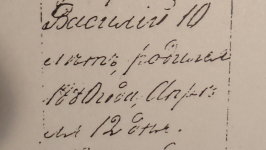 Василій 10
лѣтъ, родился
1880 года, Апрѣ
ля 12 дня.